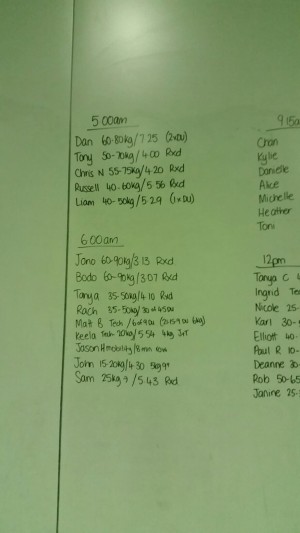 5:00am
Dan 60-80kg/7:25 (2xDU)
Tony 50-70kg/4:00 Rxd
Chris N 55-75kg/4:20 Rxd
Russell 40-60kg/5:56 Rxd
Liam 40-50kg/5:29 (1xDU)
6:00am
Jono 60-90kg/3:13 Rxd
Bodo 60-90kg/3:07 Rxd
Tanya 35-50kg/4:10 Rxd
Rach 35-50kg/
Matt B Tech /
Keela Tech-20kg/5:54 4kg
Jason H
John 15-20kg/4:30 5kg
Sam 25kg /5:43 Rxd
9:15a
Chan
Kylie
Danielle
Alice
Michelle
Heather
Toni
12pm
Tanya C
Ingrid Te
Nicole 25-
Karl 30-
Elliott 40-
Paul R 10-
Deanne 30-
Rob 50-65
Janine 25-